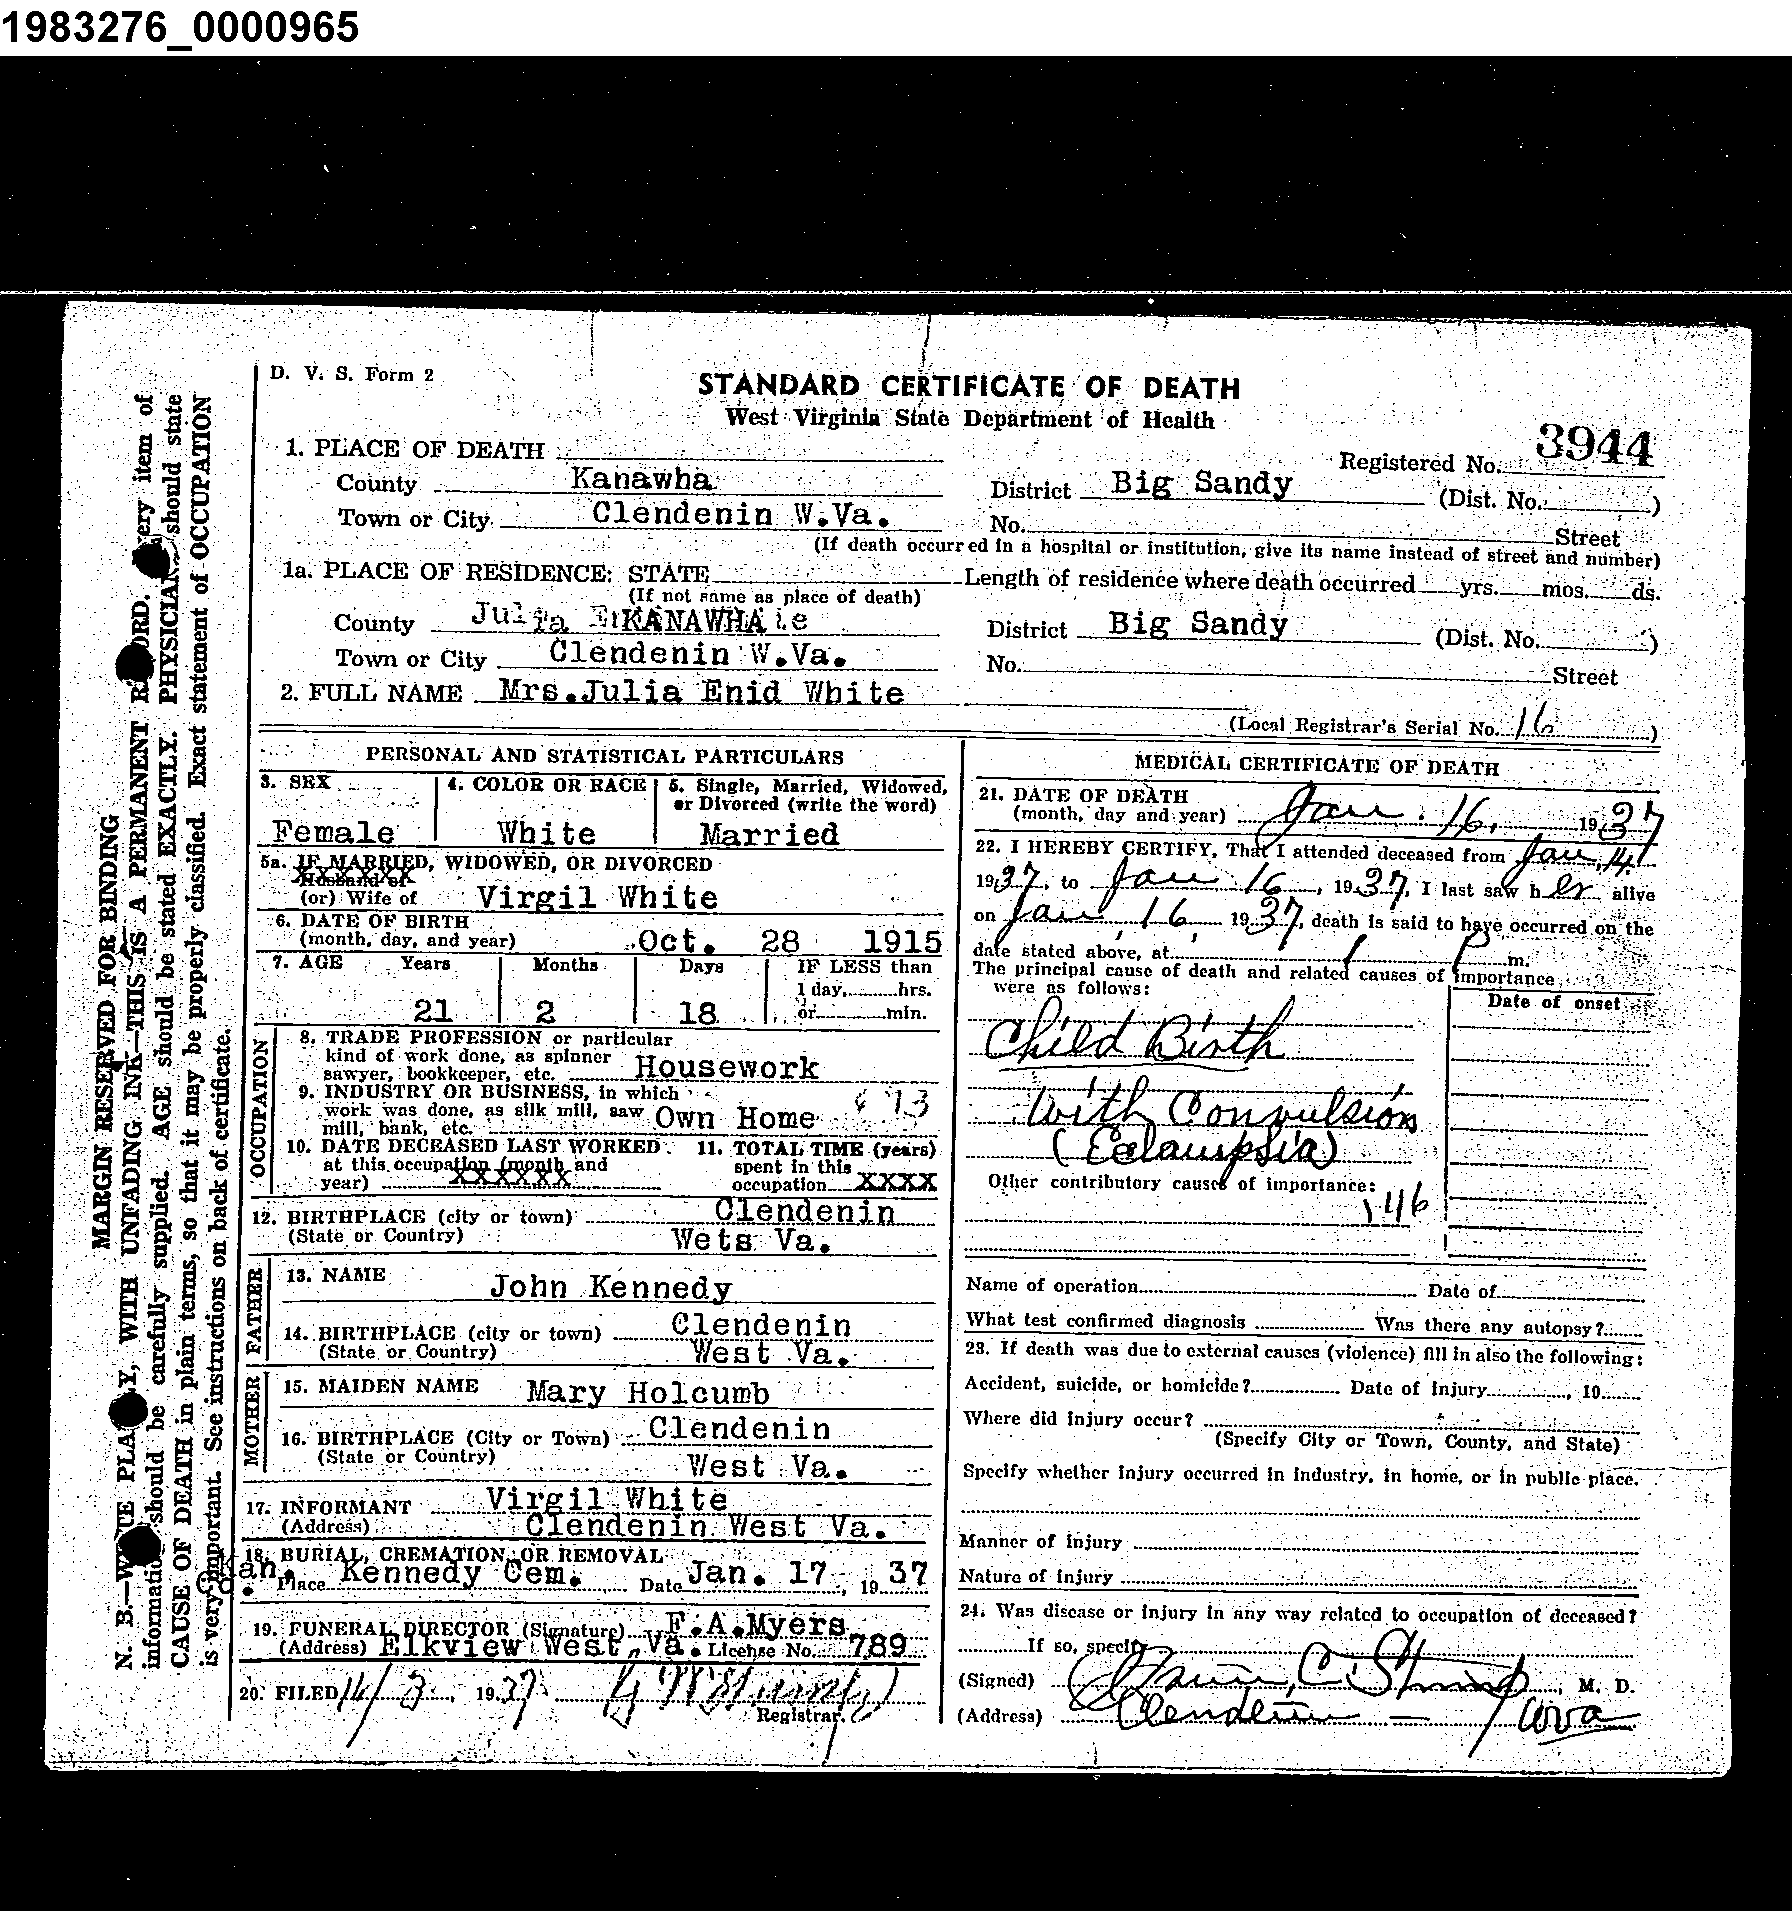 1983276_0000965
D. V. S. Form 2
STANDARD CERTIFICATE OF DEATH
West Virginia State Department of Health
3944
1. PLACE OF DEATH
Registered No.
County Kanawha District Big Sandy (Dist. No. )
Town or City Clendenin W.Va. No. Street
(If death occurred in a hospital or institution, give its name instead of street and number)
1a. PLACE OF RESIDENCE: STATE Length of residence where death occurred yrs. mos. ds.
(If not same as place of death)
County Julia KANAWHA District Big Sandy (Dist. No. )
Town or City Clendenin W.Va. No. Street
2. FULL NAME Mrs.Julia Enid White
(Local Registrar's Serial No. 16 )
PERSONAL AND STATISTICAL PARTICULARS
3. SEX 4. COLOR OR RACE 5. Single, Married, Widowed,
or Divorced (write the word)
Female White Married
5a. IF MARRIED, WIDOWED, OR DIVORCED
XXXXXX
Husband of
(or) Wife of Virgil White
6. DATE OF BIRTH
(month, day, and year) Oct. 28 1915
7. AGE Years Months Days IF LESS than
1 day, hrs.
21 2 18 or min.
OCCUPATION
8. TRADE PROFESSION or particular
kind of work done, as spinner
sawyer, bookkeeper, etc. Housework
9. INDUSTRY OR BUSINESS, in which
work was done, as silk mill, saw
mill, bank, etc. Own Home
10. DATE DECEASED LAST WORKED
at this occupation (month and
year) XXXXXX
11. TOTAL TIME (years)
spent in this
occupation XXXX
12. BIRTHPLACE (city or town) Clendenin
(State or Country) Wets Va.
FATHER
13. NAME John Kennedy
14. BIRTHPLACE (city or town) Clendenin
(State or Country) West Va.
MOTHER
15. MAIDEN NAME Mary Holcumb
16. BIRTHPLACE (City or Town) Clendenin
(State or Country) West Va.
17. INFORMANT Virgil White
(Address) Clendenin West Va.
18. BURIAL, CREMATION, OR REMOVAL
Kan.
Co. Place Kennedy Cem. Date Jan. 17, 1937
19. FUNERAL DIRECTOR (Signature) F.A.Myers
(Address) Elkview West Va. License No. 789
20. FILED 3, 1937
Registrar.
MEDICAL CERTIFICATE OF DEATH
21. DATE OF DEATH
(month, day and year) Jan. 16, 1937
22. I HEREBY CERTIFY, That I attended deceased from Jan. 14,
1937, to Jan 16, 1937, I last saw her alive
on Jan, 16, 1937, death is said to have occurred on the
date stated above, at 1 P m.
The principal cause of death and related causes of importance
were as follows:
Date of onset
Child Birth
With Convulsion
(Eclampsia)
Other contributory causes of importance:
146
Name of operation Date of
What test confirmed diagnosis Was there any autopsy?
23. If death was due to external causes (violence) fill in also the following:
Accident, suicide, or homicide? Date of injury , 19
Where did injury occur?
(Specify City or Town, County, and State)
Specify whether injury occurred in industry, in home, or in public place.
Manner of injury
Nature of injury
24. Was disease or injury in any way related to occupation of deceased?
If so, specify
(Signed) , M. D.
(Address) Clendenin - WVa
MARGIN RESERVED FOR BINDING
N. B.—WRITE PLAINLY, WITH UNFADING INK—THIS IS A PERMANENT RECORD. Every item of
information should be carefully supplied. AGE should be stated EXACTLY. PHYSICIANS should state
CAUSE OF DEATH in plain terms, so that it may be properly classified. Exact statement of OCCUPATION
is very important. See instructions on back of certificate.